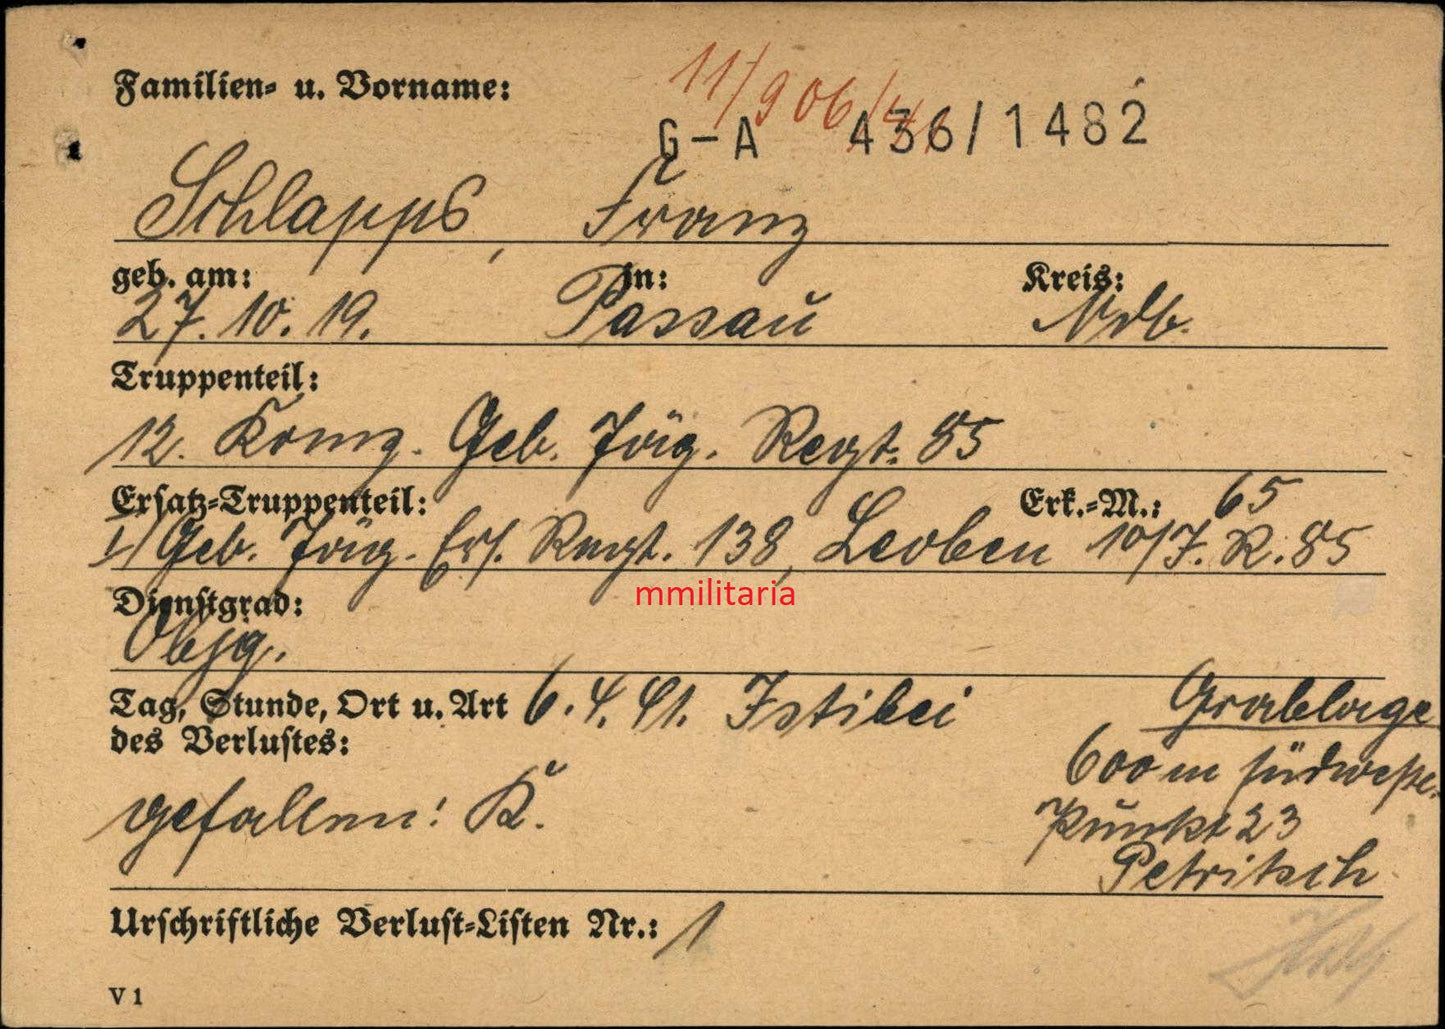 Familien- u. Vorname:
11/906/41
G-A 436/1482
Schlapps, Franz
geb. am: in: Kreis:
27.10.19. Passau Ndb.
Truppenteil:
12. Komp. Geb. Jäg. Regt. 85
Ersatz-Truppenteil: Erk.-M.: 65
I/Geb. Jäg. Ers. Regt. 138, Leoben 10/J.R.85
mmilitaria
Dienstgrad:
Objg.
Tag, Stunde, Ort u. Art 6.4.41. Istibei Grablage
des Verlustes:
600 m südwestl.
gefallen! K.
Punkt 23
Petritsch
Urschriftliche Verlust-Listen Nr.: 1
V 1